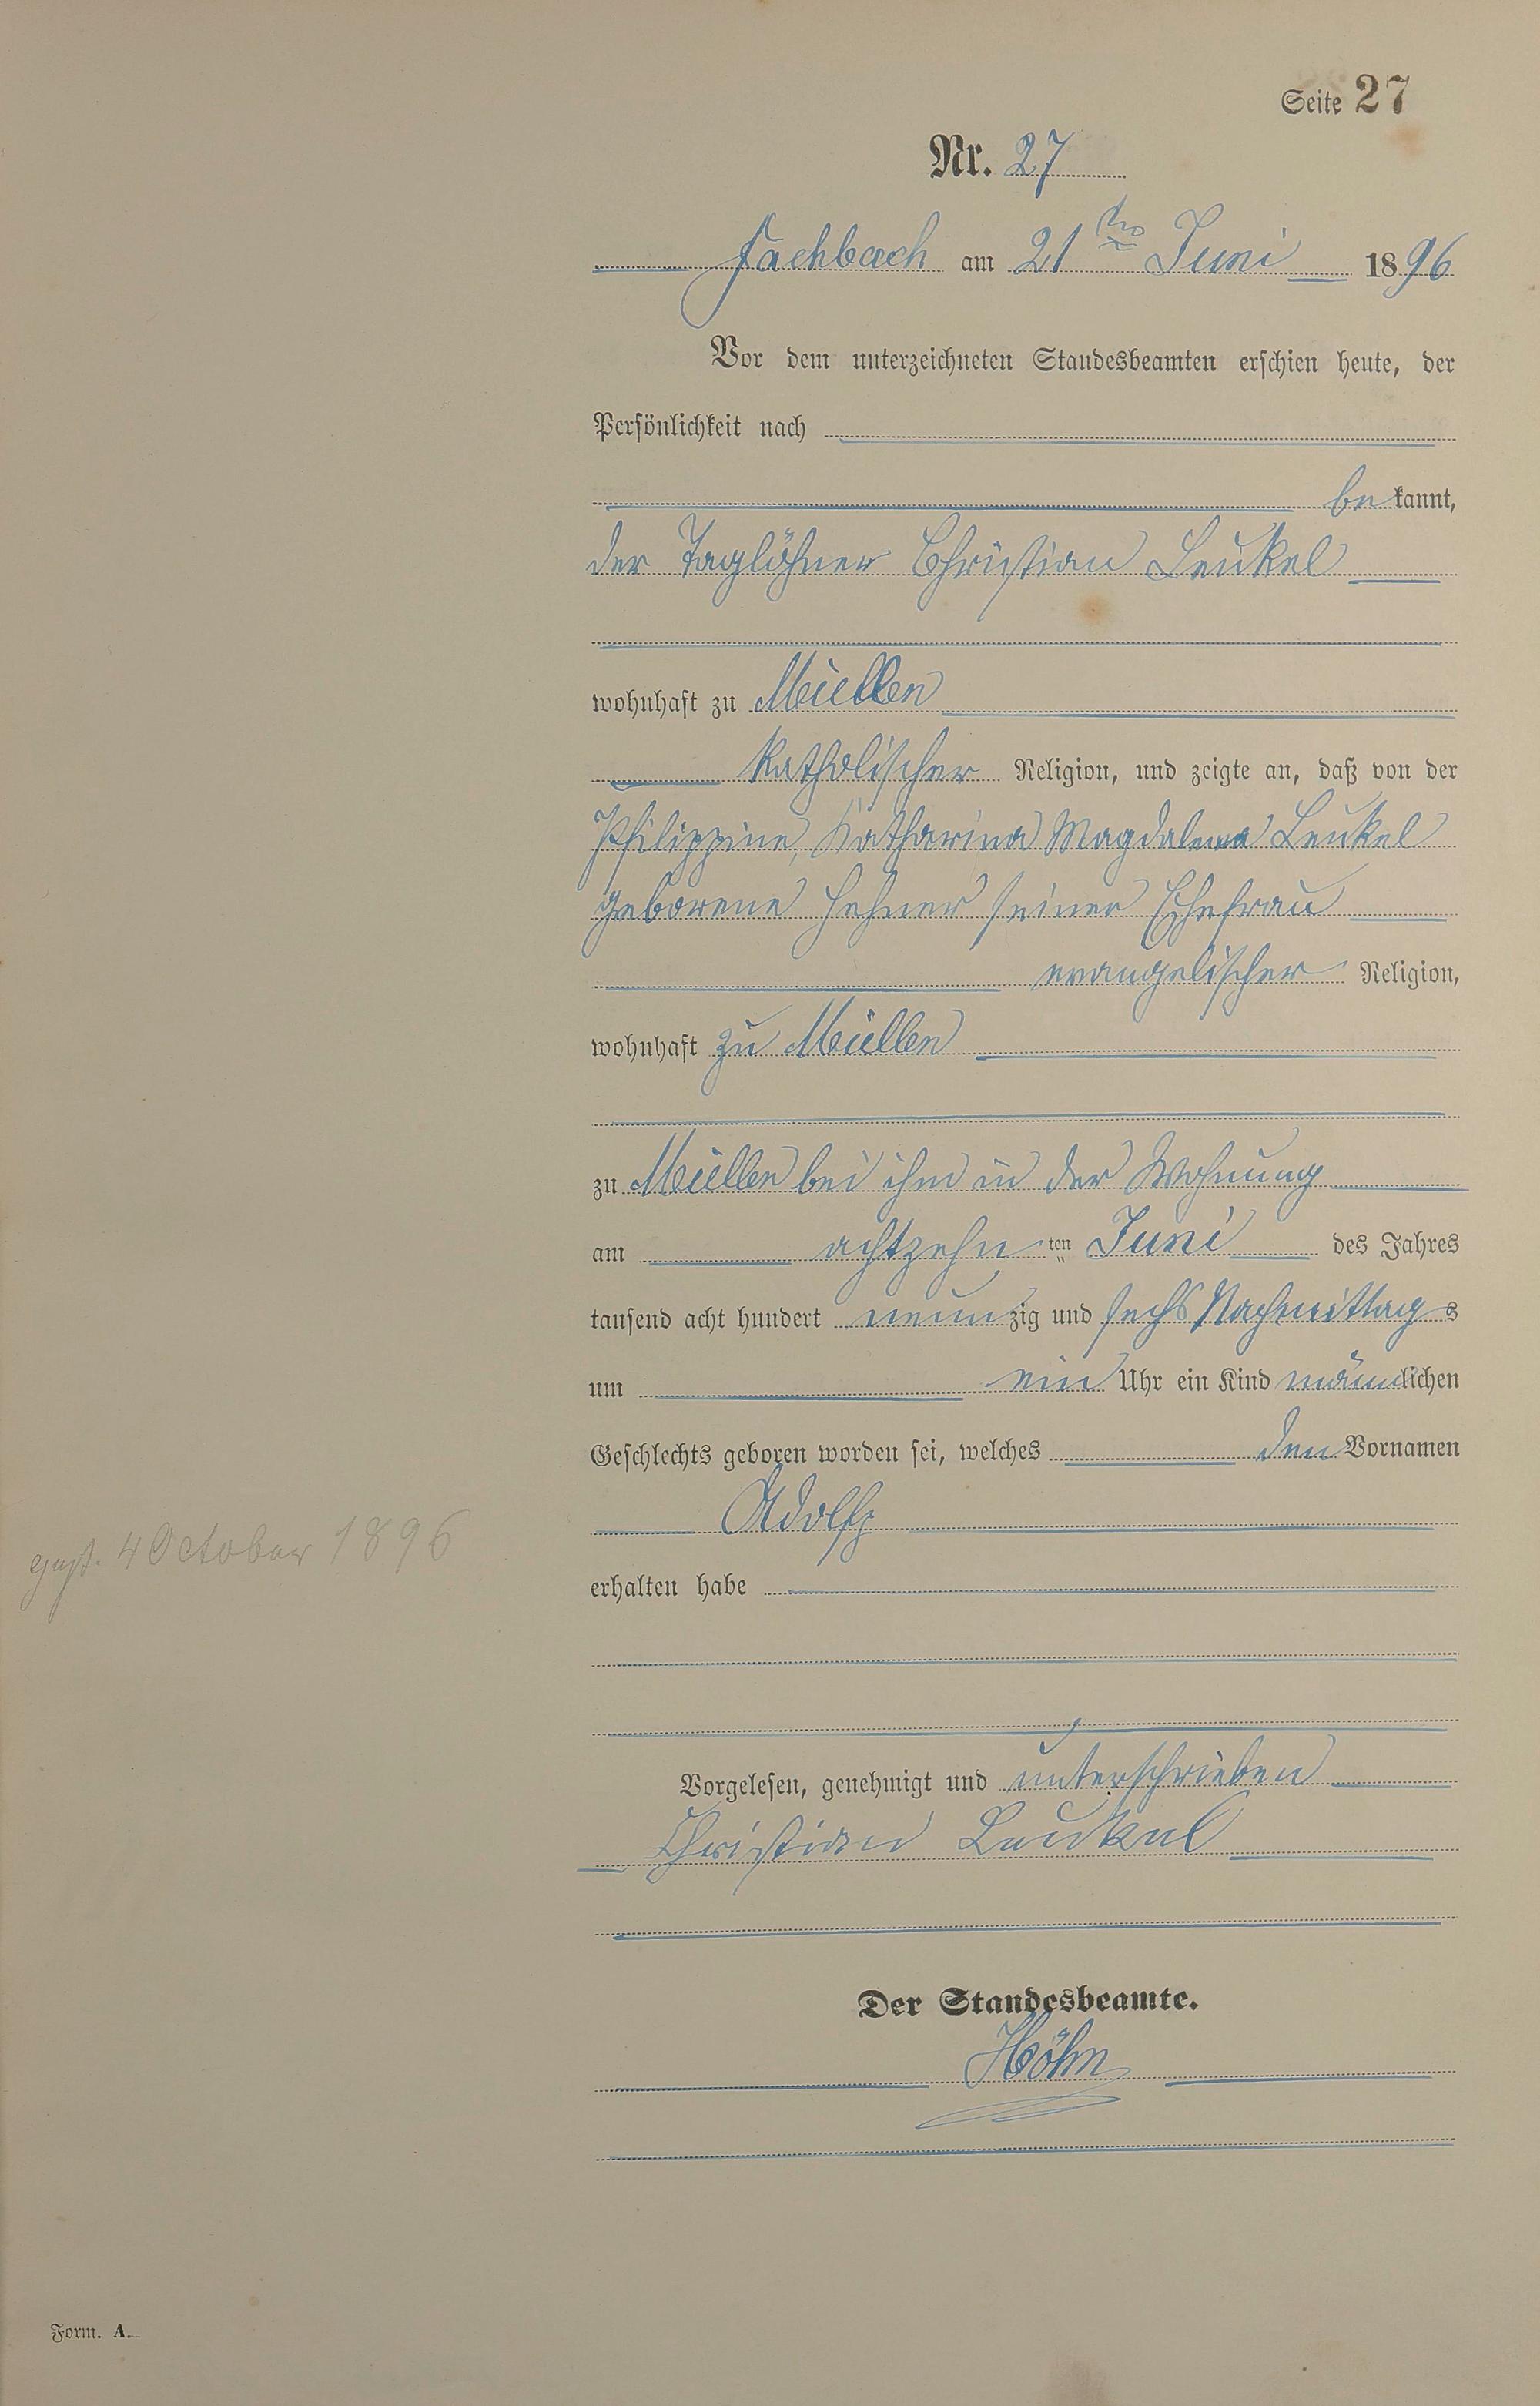 Seite 27
Nr. 27
Fachbach am 21ten Juni 1896
Vor dem unterzeichneten Standesbeamten erschien heute, der
Persönlichkeit nach
bekannt,
der Taglöhner Christian Leukel
wohnhaft zu Miellen
katholischer Religion, und zeigte an, daß von der
Philippine, Katharina Magdalena Leukel
geborene Hehner seiner Ehefrau
evangelischer Religion,
wohnhaft zu Miellen
zu Miellen bei ihm in der Wohnung
am achtzehnten Juni des Jahres
tausend acht hundert neunzig und sechs Nachmittags
um ein Uhr ein Kind männlichen
Geschlechts geboren worden sei, welches den Vornamen
Adolph
gest. 4 October 1896
erhalten habe
Vorgelesen, genehmigt und unterschrieben
Christian Leukel
Der Standesbeamte.
Höhn
Form. A.